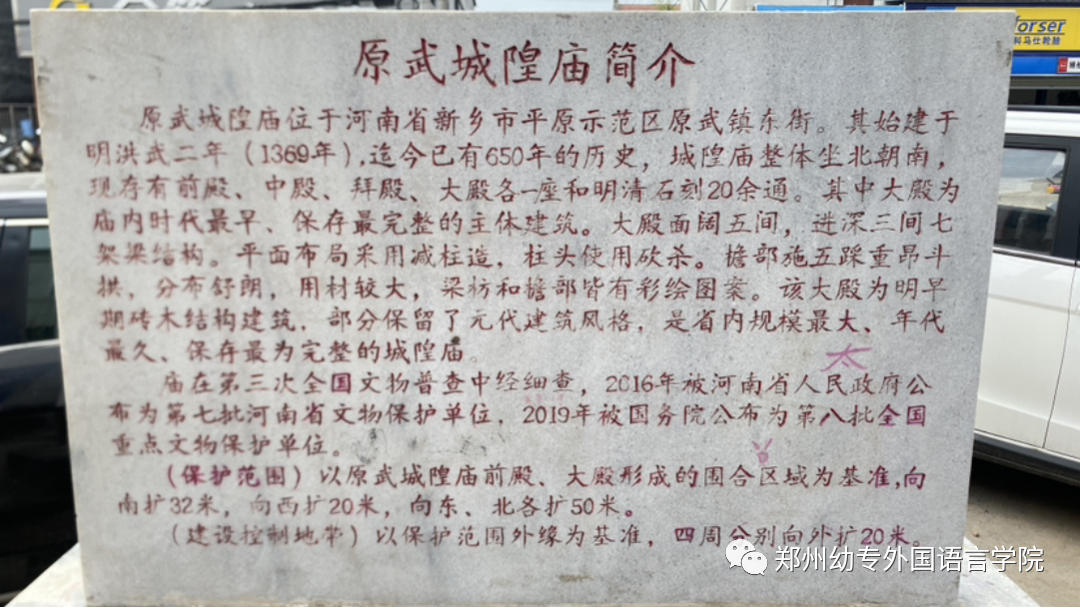 原武城隍庙简介
原武城隍庙位于河南省新乡市平原示范区原武镇东街。其始建于
明洪武二年（1369年），迄今已有650年的历史，城隍庙整体坐北朝南，
现存有前殿、中殿、拜殿、大殿各一座和明清石刻20余通。其中大殿为
庙内时代最早、保存最完整的主体建筑。大殿面阔五间，进深三间七
架梁结构。平面布局采用减柱造，柱头使用砍杀。檐部施五踩重昂斗
拱，分布舒朗，用材较大，梁枋和檐部皆有彩绘图案。该大殿为明早
期砖木结构建筑，部分保留了元代建筑风格，是省内规模最大、年代
最久、保存最为完整的城隍庙。
太
庙在第三次全国文物普查中经细查，2016年被河南省人民政府公
布为第七批河南省文物保护单位，2019年被国务院公布为第八批全国
重点文物保护单位。
（保护范围）以原武城隍庙前殿、大殿形成的围合区域为基准，向
南扩32米，向西扩20米，向东、北各扩50米。
（建设控制地带）以保护范围外缘为基准，四周分别向外扩20米。
郑州幼专外国语言学院
forser
科马仕轮胎